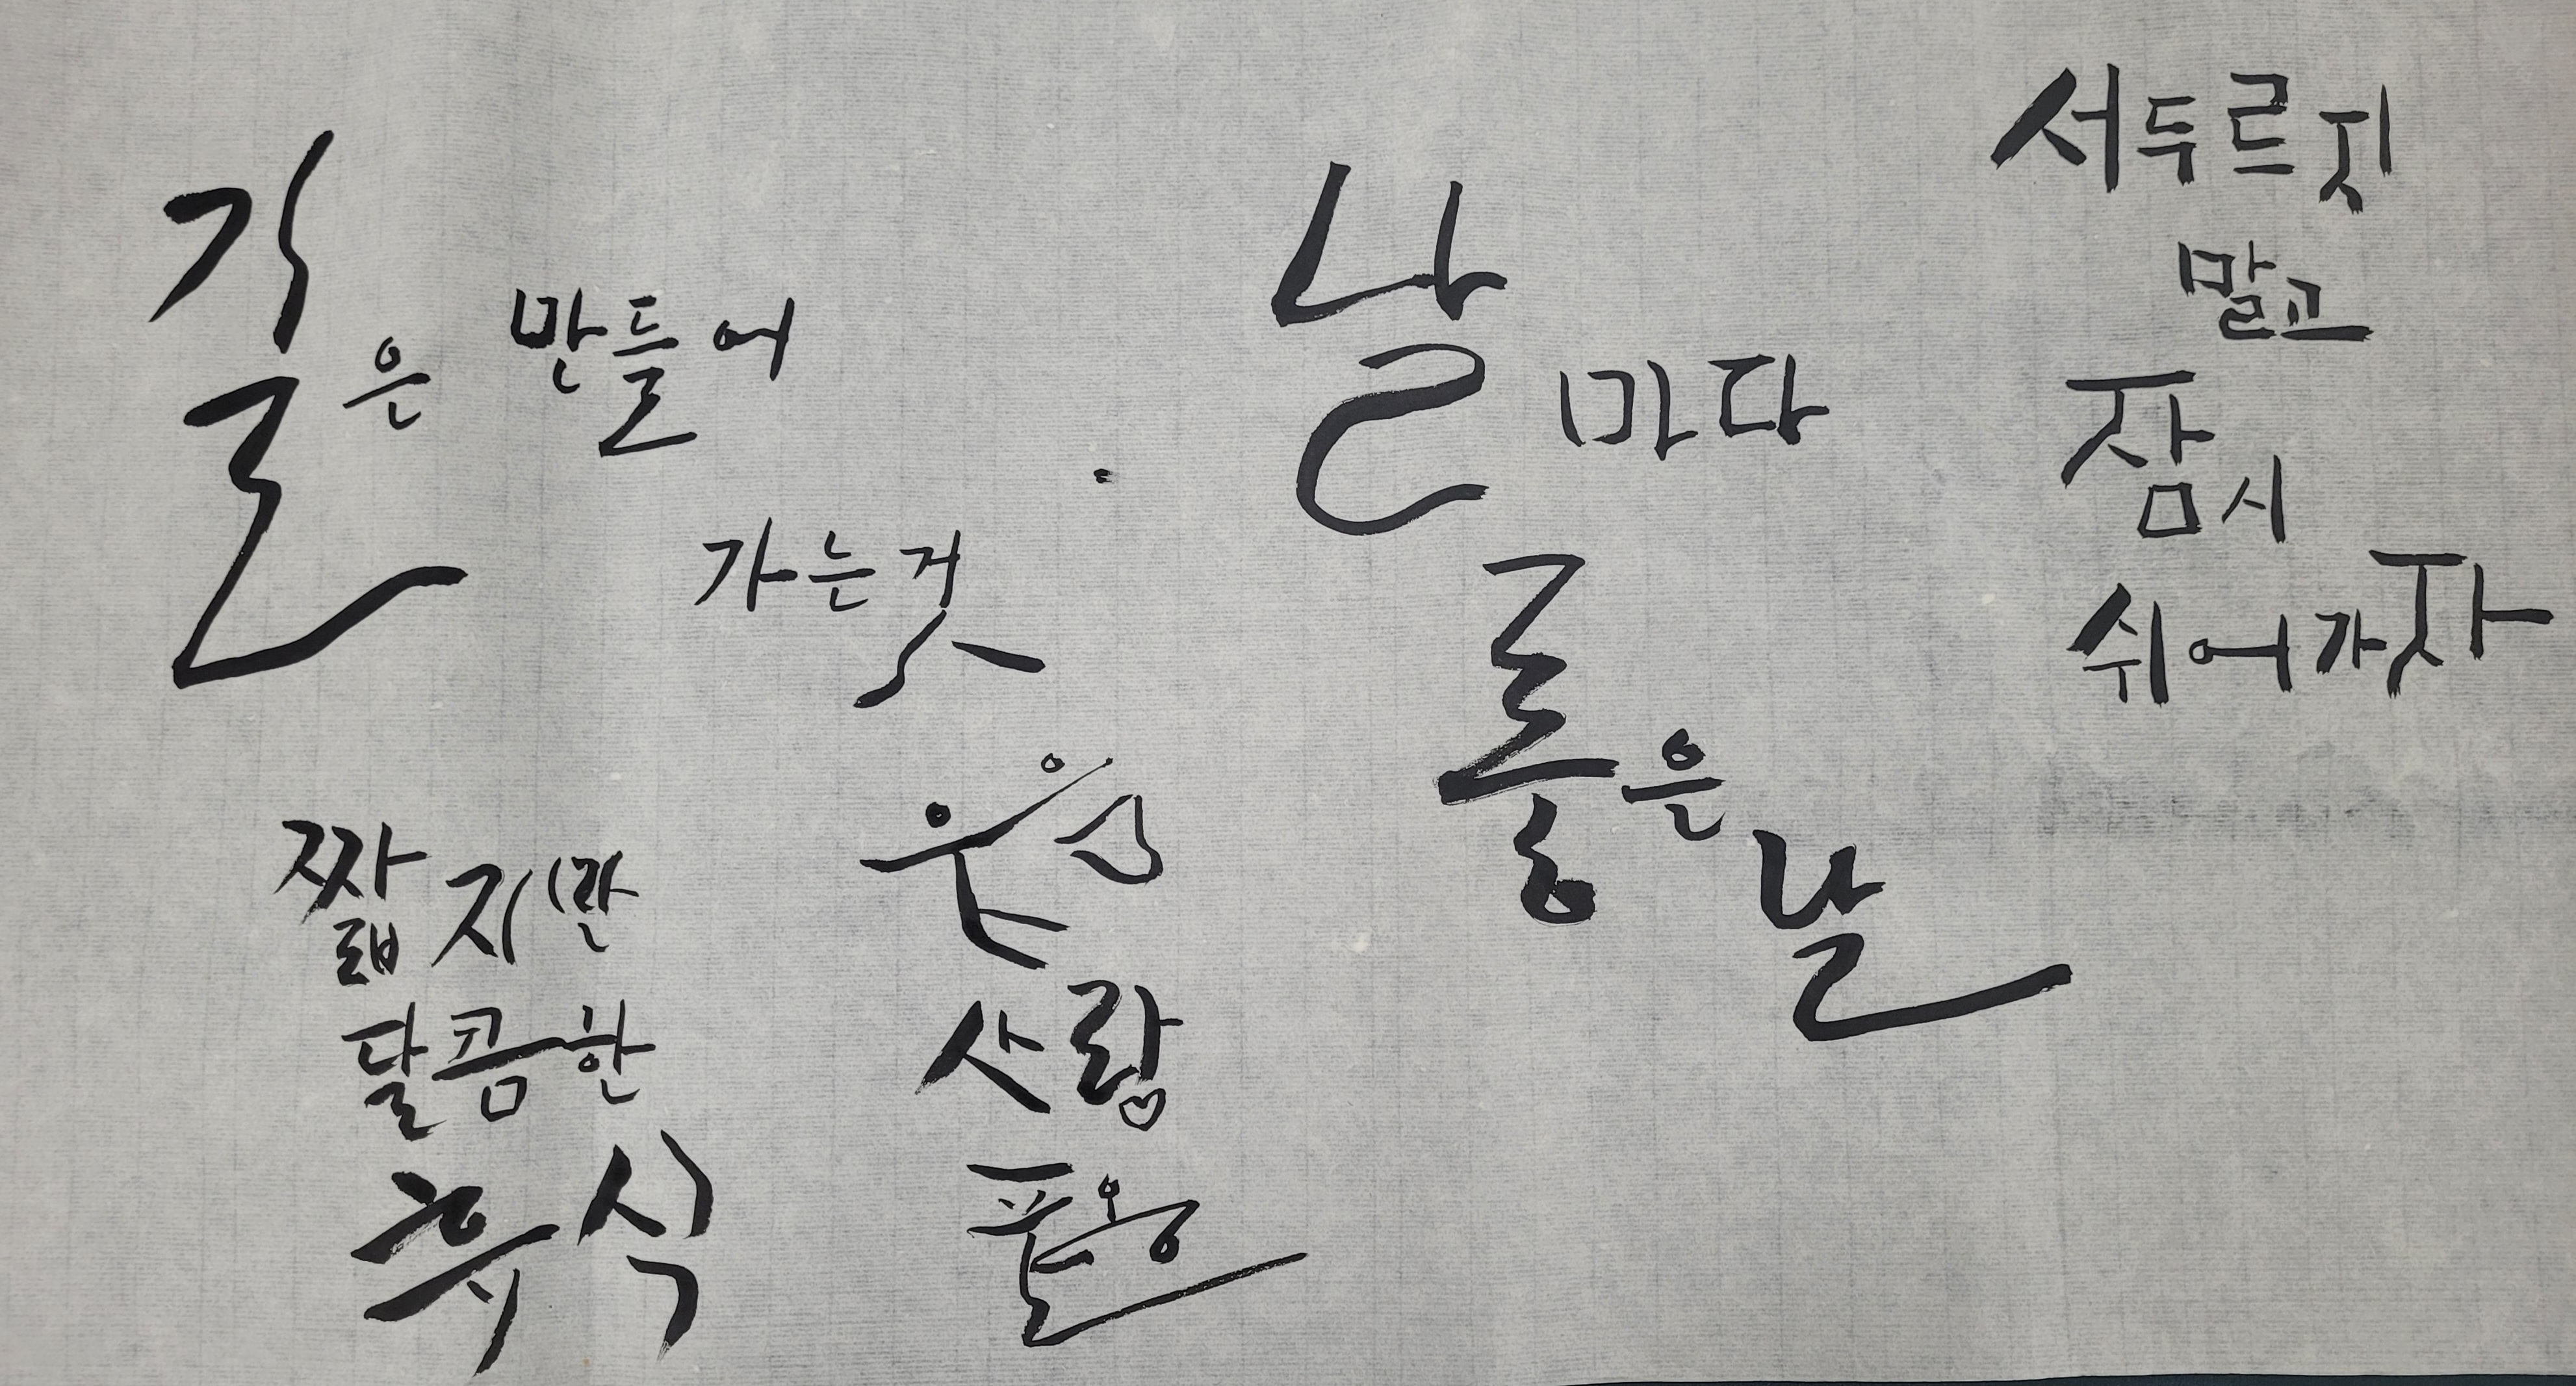 길은 만들어
가는 것
날마다
좋은 날
서두르지
말고
잠시
쉬어가자
짧지만
달콤한
휴식
웃음
사랑